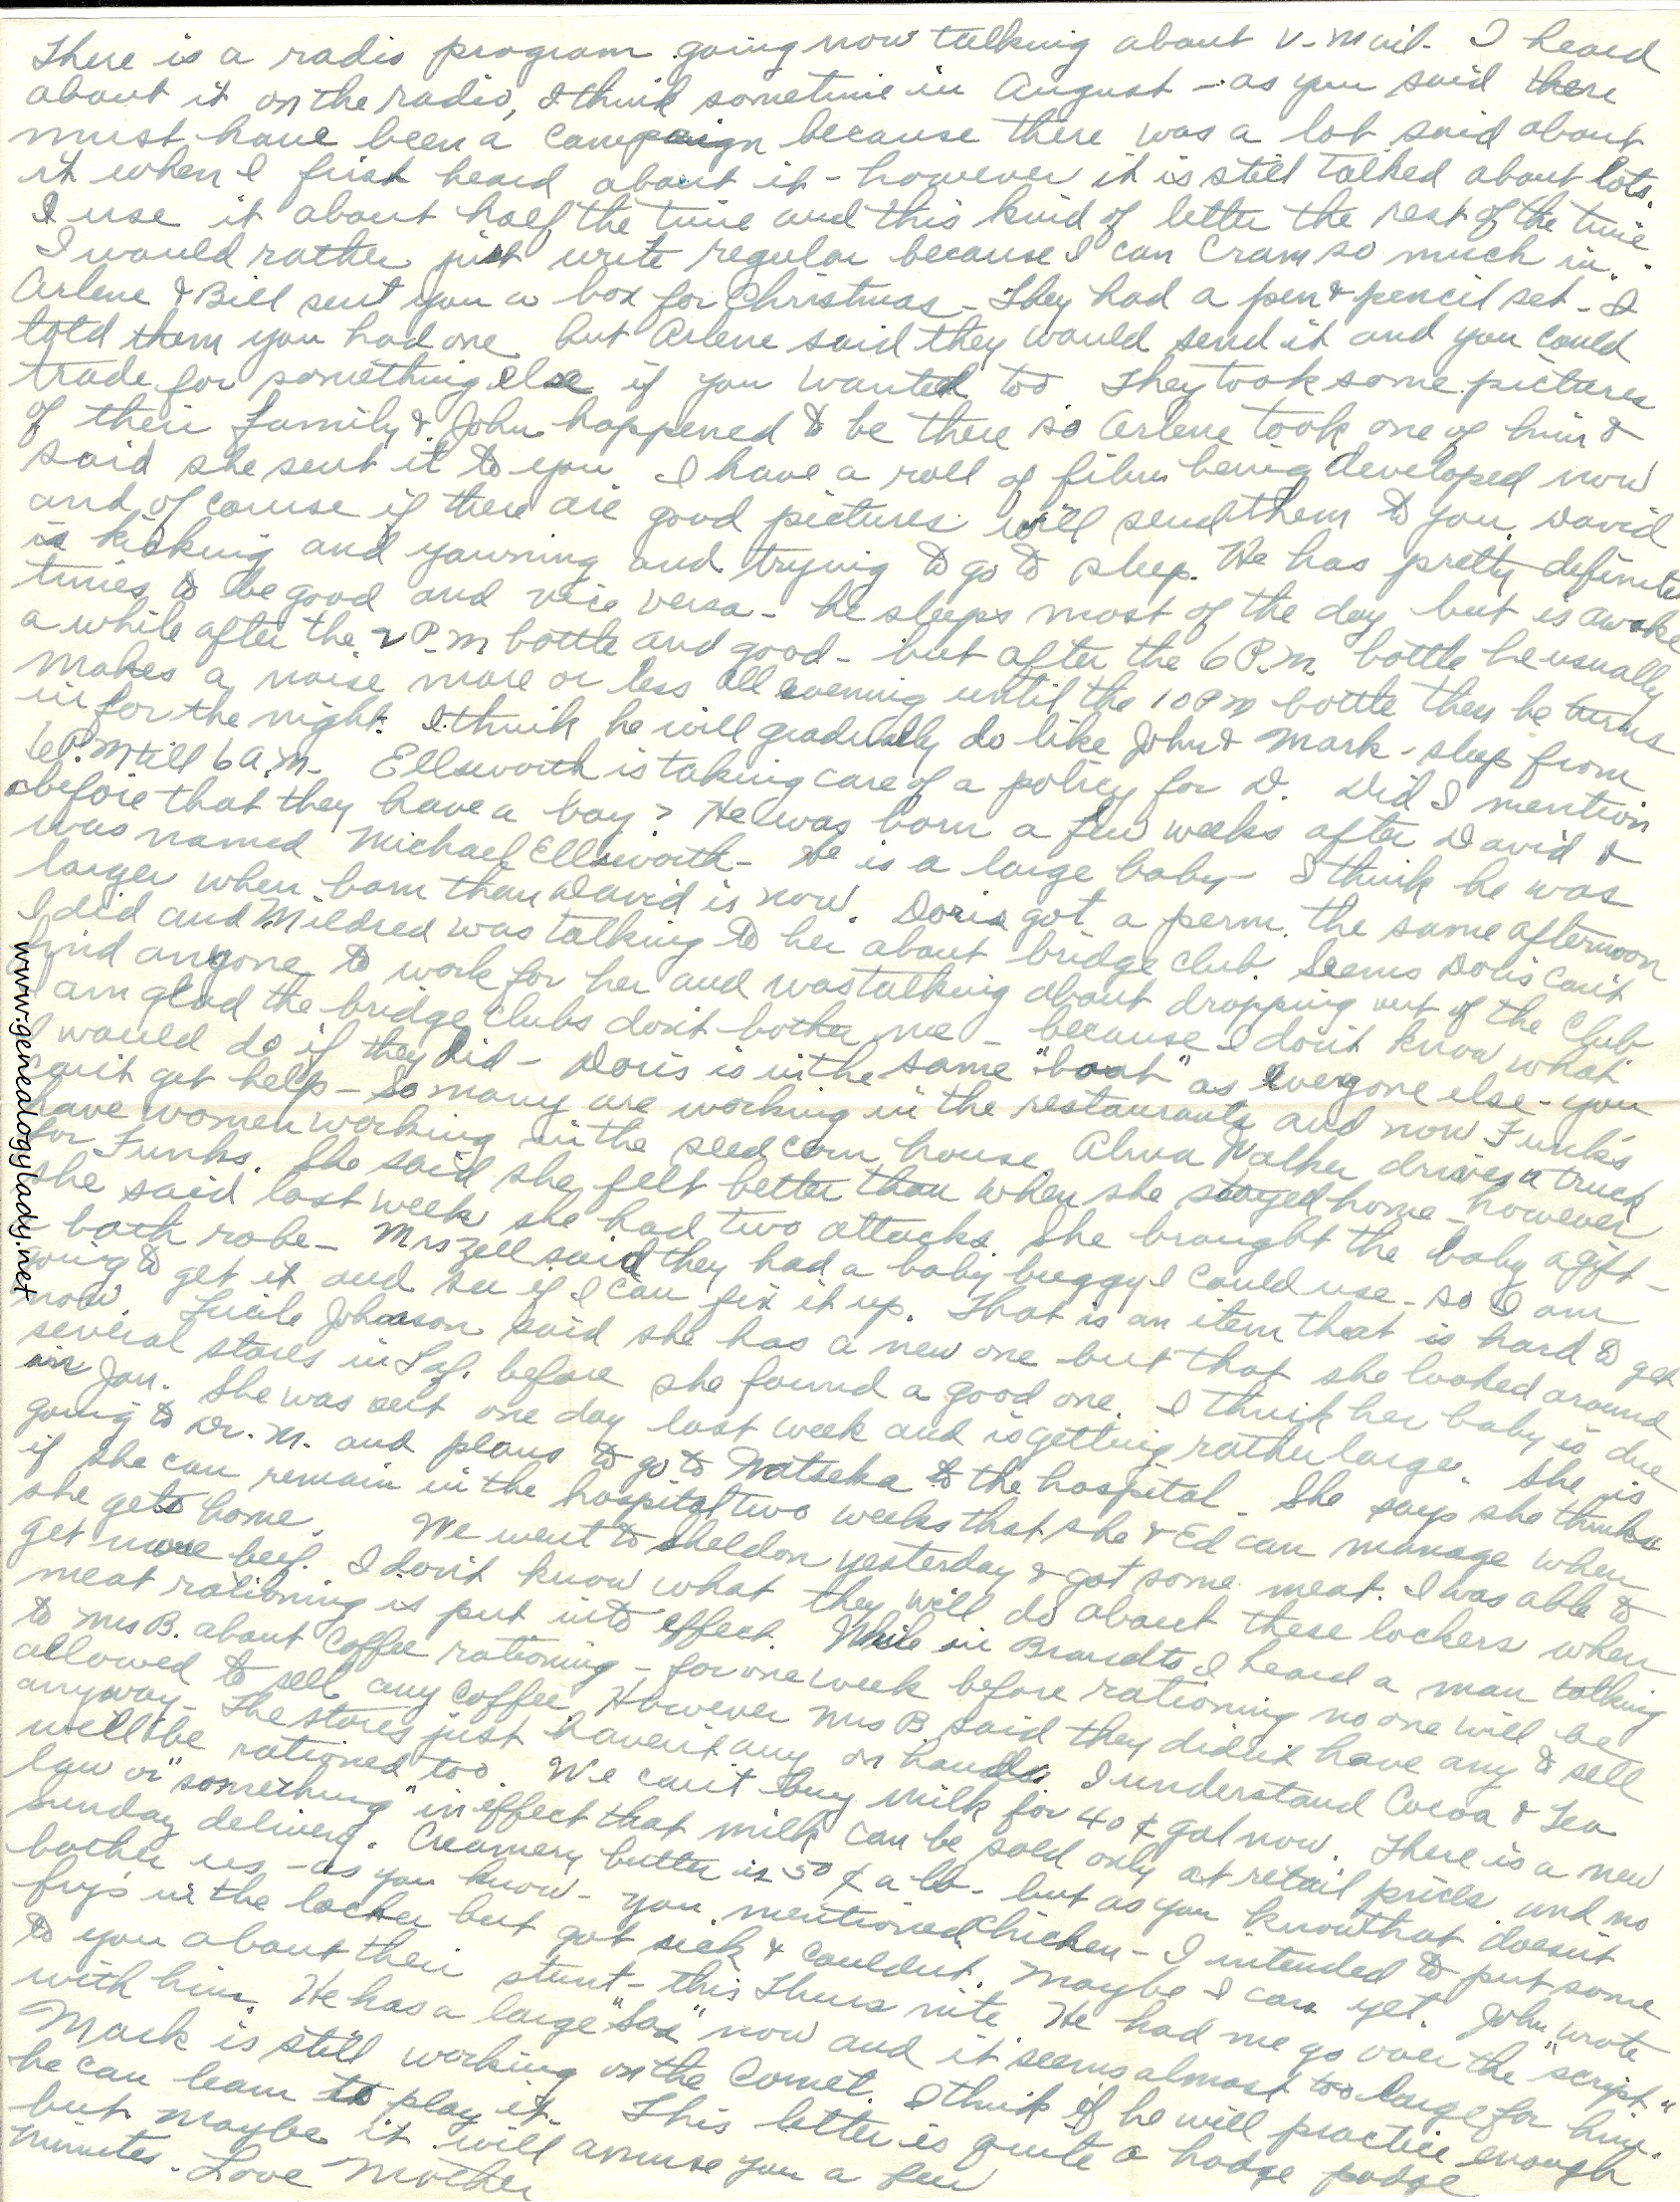 There is a radio program going now talking about V-Mail. I heard
about it on the radio, I think sometime in August - as you said there
must have been a campaign because there was a lot said about
it when I first heard about it - however it is still talked about lots.
I use it about half the time and this kind of letter the rest of the time.
I would rather just write regular because I can cram so much in.
Arlene & Bill sent you a box for Christmas - They had a pen & pencil set - I
told them you had one but Arlene said they would send it and you could
trade for something else if you wanted too They took some pictures
of their family & John happened to be there so Arlene took one of him &
said she sent it to you I have a roll of film being developed now
and of course if there are good pictures will send them to you. David
is kicking and yawning and trying to go to sleep. He has pretty definite
times to be good and vice versa - he sleeps most of the day but is awake
a while after the 2 P.M bottle and good - but after the 6 P.M. bottle he usually
makes a noise more or less all evening until the 10 PM bottle then he turns
in for the night. I think he will gradually do like John & Mark - sleep from
6 P.M till 6 a.m. Ellsworth is taking care of a policy for D. Did I mention
before that they have a boy? He was born a few weeks after David &
was named Michael Ellsworth - He is a large baby - I think he was
larger when born than David is now. Doris got a perm. the same afternoon
I did and Mildred was talking to her about bridge club. Seems Doris can't
find anyone to work for her and was talking about dropping out of the club
I am glad the bridge clubs don't bother me - because I don't know what
I would do if they did - Doris is in the same "boat" as everyone else - you
can't get help - so many are working in the restaurants and now Funk's
have women working in the seed corn house. Alma Walker drives a truck
for Funks. She said she felt better than when she stayed home - however
she said last week she had two attacks. She brought the baby a gift -
a bath robe - Mrs Zell said they had a baby buggy I could use - so I am
going to get it and see if I can fix it up. That is an item that is hard to get
now. Lucile Johnson said she has a new one but that she looked around
several stores in Laf. before she found a good one. I think her baby is due
in Jan. She was out one day last week and is getting rather large. She is
going to Dr. M. and plans to go to Watseka to the hospital. She says she thinks
if she can remain in the hospital two weeks that she & Ed can manage when
she gets home. We went to Sheldon yesterday & got some meat. I was able to
get more beef. I don't know what they will do about these lockers when
meat rationing is put into effect. While in Brandts I heard a man talking
to Mrs B. about coffee rationing - for one week before rationing no one will be
allowed to sell any coffee. However Mrs B said they didn't have any to sell
anyway - The stores just haven't any on hands. I understand Cocoa & Tea
will be rationed too. We can't buy milk for 40¢ gal now. There is a new
law or "something" in effect that milk can be sold only at retail prices and no
Sunday delivery. Creamery butter is 50¢ a lb. - but as you know that doesn't
bother us - as you know - you mentioned chicken - I intended to put some
frys in the locker but got sick & couldn't. Maybe I can yet. John wrote
to you about their stunt - this Thurs nite. He had me go over the "script"
with him. He has a large "Sax" now and it seems almost too large for him.
Mark is still working on the Cornet. I think if he will practice enough
he can learn to play it. This letter is quite a hodge podge
but maybe it will amuse you a few
minutes. Love Mother
www.genealogylady.net